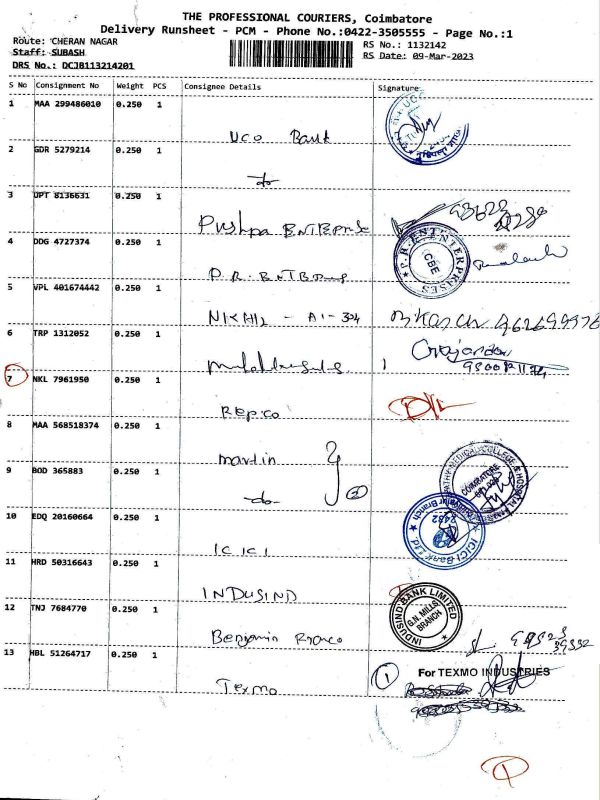 THE PROFESSIONAL COURIERS, Coimbatore
Delivery Runsheet - PCM - Phone No.:0422-3505555 - Page No.:1
Route: CHERAN NAGAR
RS No.: 1132142
Staff: SUBASH
RS Date: 09-Mar-2023
DRS No.: DCJB113214201
S No Consignment No Weight PCS Consignee Details Signature
1 MAA 299486010 0.250 1
UCO Bank
2 GDR 5279214 0.250 1
do
3 UPT 8136631 0.250 1
Pushpa ENTERPrise
4 DDG 4727374 0.250 1
P.R. ENTERprises
P.R. ENTERPRISES
CBE
5 VPL 401674442 0.250 1
NIKHIL - A1-304
6 TRP 1312052 0.250 1
7 NKL 7961950 0.250 1
Repco
D/L
8 MAA 568518374 0.250 1
martin
9 BOD 365883 0.250 1
do
2
COIMBATORE
10 EDQ 20160664 0.250 1
ICICI
ICICI Bank Ltd.
11 HRD 50316643 0.250 1
INDUSIND
INDUSIND BANK LIMITED
G.N. MILLS
BRANCH
12 TNJ 7684770 0.250 1
Benjamin Franco
13 HBL 51264717 0.250 1
Texmo
1
For TEXMO INDUSTRIES